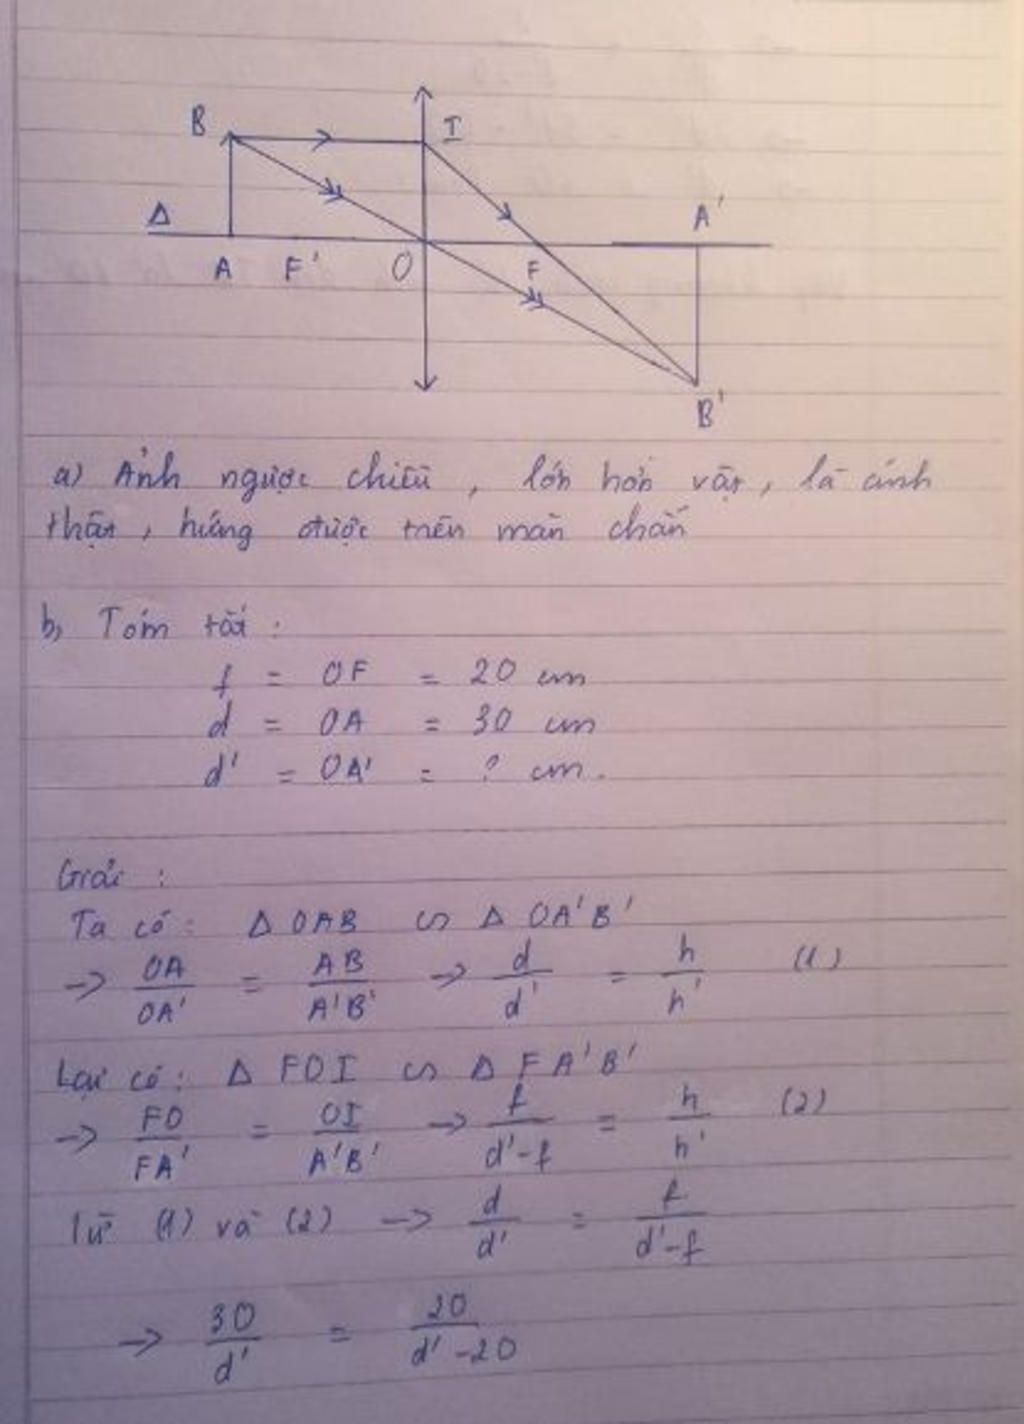 B I
Δ A'
A F' O F
B'
a) Ảnh ngược chiều, lớn hơn vật, là ảnh
thật, hứng được trên màn chắn
b, Tóm tắt:
f = OF = 20 cm
d = OA = 30 cm
d' = OA' = ? cm.
Giải:
Ta có: Δ OAB ∽ Δ OA'B'
→ OA/OA' = AB/A'B' → d/d' = h/h' (1)
Lại có: Δ FOI ∽ Δ FA'B'
→ FO/FA' = OI/A'B' → f/d'-f = h/h' (2)
Từ (1) và (2) → d/d' = f/d'-f
→ 30/d' = 20/d'-20